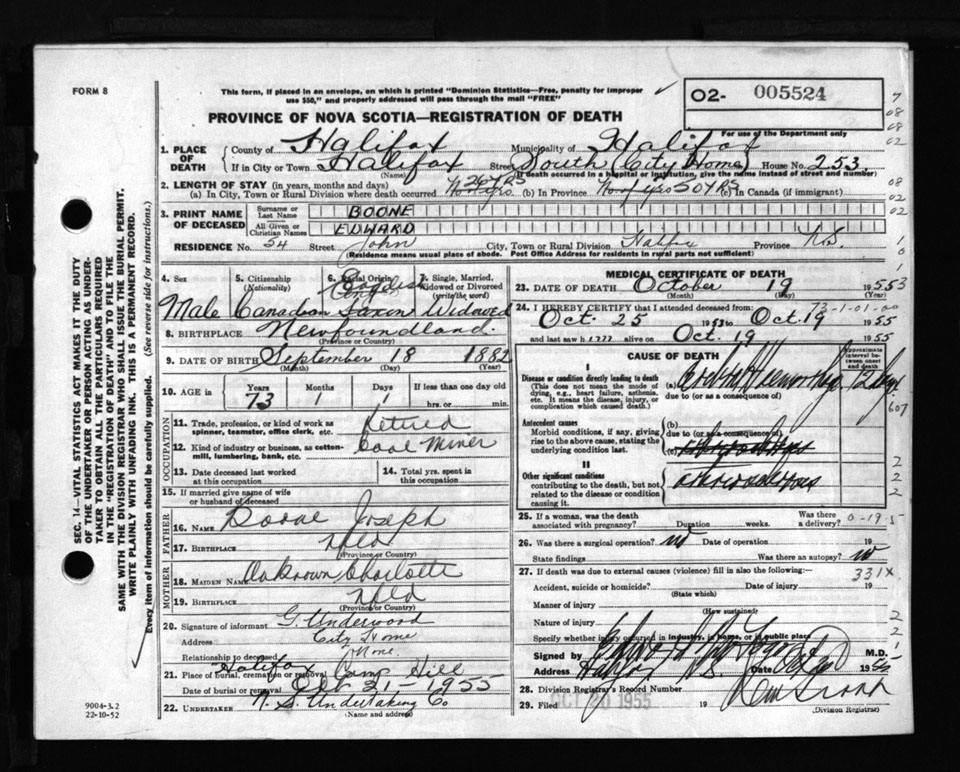 FORM 8
This form, if placed in an envelope, on which is printed "Dominion Statistics—Free, penalty for improper
use $50," and properly addressed will pass through the mail "FREE"
O2- 005524
PROVINCE OF NOVA SCOTIA—REGISTRATION OF DEATH
For use of the Department only
1. PLACE OF DEATH
County of Halifax Municipality of Halifax
If in City or Town Halifax Street South (City Home) House No. 253
(Name) (If death occurred in a hospital or institution, give the name instead of street and number)
2. LENGTH OF STAY (in years, months and days)
(a) In City, Town or Rural Division where death occurred 26 YRS (b) In Province 50 YRS (c) In Canada (if immigrant)
3. PRINT NAME OF DECEASED
Surname or Last Name BOONE
All Given or Christian Names EDWARD
RESIDENCE No. 54 Street John City, Town or Rural Division Halifax Province N.S.
(Residence means usual place of abode. Post Office Address for residents in rural parts not sufficient)
4. Sex Male
5. Citizenship (Nationality) Canadian
6. Racial Origin Saxon
7. Single, Married, Widowed or Divorced (write the word) Widowed
8. BIRTHPLACE Newfoundland
(Province or Country)
9. DATE OF BIRTH September 18 1882
(Month) (Day) (Year)
10. AGE in Years Months Days If less than one day old
73 1 1 hrs. or min.
OCCUPATION
11. Trade, profession, or kind of work as spinner, teamster, office clerk, etc. Retired
12. Kind of industry or business, as cotton-mill, lumbering, bank, etc. Coal Miner
13. Date deceased last worked at this occupation
14. Total yrs. spent in this occupation
15. If married give name of wife or husband of deceased
FATHER
16. NAME Boone Joseph
17. BIRTHPLACE Nfld
(Province or Country)
MOTHER
18. MAIDEN NAME Unknown Charlotte
19. BIRTHPLACE Nfld
(Province or Country)
20. Signature of informant G. Underwood
Address City Home
Relationship to deceased None.
21. Place of burial, cremation or removal Halifax Camp Hill
Date of burial or removal Oct 21 - 1955
22. UNDERTAKER N. S. Undertaking Co
(Name and address)
MEDICAL CERTIFICATE OF DEATH
23. DATE OF DEATH October 19 1955
(Month) (Day) (Year)
24. I HEREBY CERTIFY that I attended deceased from:
73-1-01-00
Oct. 25 1953 to Oct. 19 1955
and last saw him alive on Oct. 19 1955
CAUSE OF DEATH
Approximate interval between onset and death
I
Disease or condition directly leading to death
(This does not mean the mode of dying, e.g., heart failure, asthenia. It means the disease, injury, or complication which caused death.)
(a) Hemorrhage
due to (or as a consequence of)
Antecedent causes
Morbid conditions, if any, giving rise to the above cause, stating the underlying condition last.
(b)
due to (or as a consequence of)
(c)
II
Other significant conditions
contributing to the death, but not related to the disease or condition causing it.
25. If a woman, was the death associated with pregnancy? Duration weeks. Was there a delivery?
26. Was there a surgical operation? no Date of operation 19
State findings Was there an autopsy? no
27. If death was due to external causes (violence) fill in also the following:—
331X
Accident, suicide or homicide? Date of injury 19
(State which)
Manner of injury
(How sustained)
Nature of injury
Specify whether injury occurred in industry, in home, or in public place
Signed by M.D.
Address Halifax N.S. Date
28. Division Registrar's Record Number
29. Filed OCT 20 1955 19
(Division Registrar)
SEC. 14—VITAL STATISTICS ACT MAKES IT THE DUTY
OF THE UNDERTAKER OR PERSON ACTING AS UNDER-
TAKER TO OBTAIN ALL THE PARTICULARS REQUIRED
IN THE "REGISTRATION OF DEATH" AND TO FILE THE
SAME WITH THE DIVISION REGISTRAR WHO SHALL ISSUE THE BURIAL PERMIT.
WRITE PLAINLY WITH UNFADING INK. THIS IS A PERMANENT RECORD.
Every item of information should be carefully supplied. (See reverse side for instructions.)
9004-3.2
22-10-52